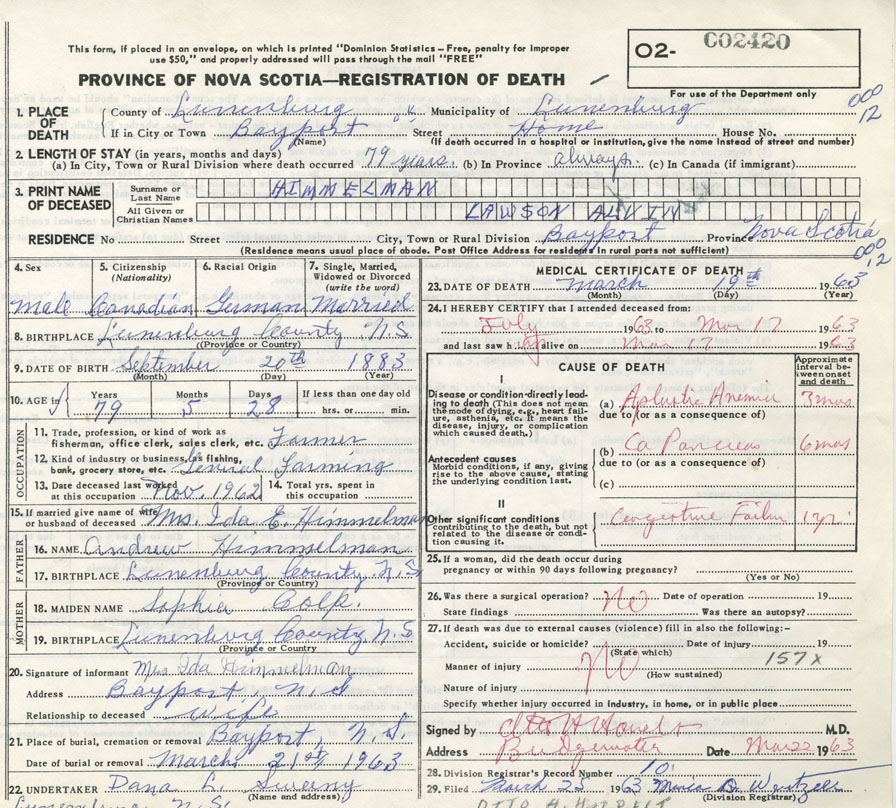 This form, if placed in an envelope, on which is printed "Dominion Statistics – Free, penalty for improper
use $50," and properly addressed will pass through the mail "FREE"
O2- C02420
PROVINCE OF NOVA SCOTIA—REGISTRATION OF DEATH
For use of the Department only
000
12
1. PLACE OF DEATH
County of Lunenburg Municipality of Lunenburg
If in City or Town Bayport Street Home House No.
(Name) (If death occurred in a hospital or institution, give the name instead of street and number)
2. LENGTH OF STAY (in years, months and days)
(a) In City, Town or Rural Division where death occurred 79 years (b) In Province always. (c) In Canada (if immigrant)
3. PRINT NAME OF DECEASED
Surname or Last Name HIMMELMAN
All Given or Christian Names LAWSON ALVIN
RESIDENCE No Street City, Town or Rural Division Bayport Province Nova Scotia
(Residence means usual place of abode. Post Office Address for residents in rural parts not sufficient)
000
12
4. Sex
male
5. Citizenship (Nationality)
Canadian
6. Racial Origin
German
7. Single, Married, Widowed or Divorced (write the word)
Married
8. BIRTHPLACE Lunenburg County N.S
(Province or Country)
9. DATE OF BIRTH September 20th 1883
(Month) (Day) (Year)
10. AGE in Years Months Days If less than one day old
79 5 28 hrs. or min.
OCCUPATION
11. Trade, profession, or kind of work as
fisherman, office clerk, sales clerk, etc. Farmer
12. Kind of industry or business, as fishing,
bank, grocery store, etc. General Farming
13. Date deceased last worked
at this occupation Nov. 1962
14. Total yrs. spent in
this occupation
15. If married give name of wife
or husband of deceased Mrs. Ida E. Himmelman
FATHER
16. NAME Andrew Himmelman
17. BIRTHPLACE Lunenburg County, N.S
(Province or Country)
MOTHER
18. MAIDEN NAME Sophia Colp.
19. BIRTHPLACE Lunenburg County N.S
(Province or Country)
20. Signature of informant Mrs Ida Himmelman
Address Bayport, N.S
Relationship to deceased wife
21. Place of burial, cremation or removal Bayport, N.S.
Date of burial or removal March 21st 1963
22. UNDERTAKER Dana L. Sweeny
(Name and address)
Lunenburg N.S.
MEDICAL CERTIFICATE OF DEATH
23. DATE OF DEATH March 19th 1963
(Month) (Day)
24. I HEREBY CERTIFY that I attended deceased from:
July 1963 to Mar 17 1963
and last saw h alive on Mar 17 1963
CAUSE OF DEATH
Approximate interval between onset and death
I
Disease or condition directly leading to death (This does not mean the mode of dying, e.g., heart failure, asthenia, etc. It means the disease, injury, or complication which caused death.)
(a) Aplastic Anemia 3 mos
due to (or as a consequence of)
Antecedent causes
Morbid conditions, if any, giving rise to the above cause, stating the underlying condition last.
(b) Ca Pancreas 6 mos
due to (or as a consequence of)
(c)
II
Other significant conditions
contributing to the death, but not related to the disease or condition causing it.
Congestive Failure 1 yr.
25. If a woman, did the death occur during
pregnancy or within 90 days following pregnancy?
(Yes or No)
26. Was there a surgical operation? No Date of operation 19
State findings Was there an autopsy?
27. If death was due to external causes (violence) fill in also the following:–
Accident, suicide or homicide? Date of injury 19
(State which)
Manner of injury No 157X
(How sustained)
Nature of injury
Specify whether injury occurred in industry, in home, or in public place
Signed by M.D.
Address Bridgewater Date Mar 22 1963
28. Division Registrar's Record Number 10
29. Filed March 25 1963
(Division Registrar)
OTTO H.